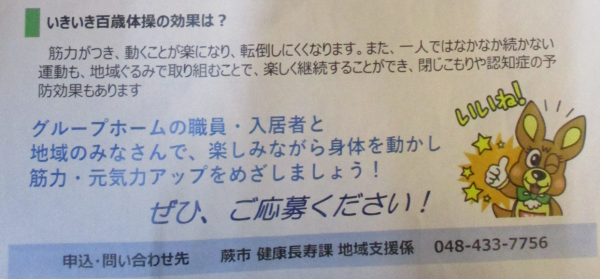 いきいき百歳体操の効果は？
筋力がつき、動くことが楽になり、転倒しにくくなります。また、一人ではなかなか続かない
運動も、地域ぐるみで取り組むことで、楽しく継続することができ、閉じこもりや認知症の予
防効果もあります
いいね!
グループホームの職員・入居者と
地域のみなさんで、楽しみながら身体を動かし
筋力・元気力アップをめざしましょう！
ぜひ、ご応募ください！
申込・問い合わせ先　蕨市 健康長寿課 地域支援係　048-433-7756